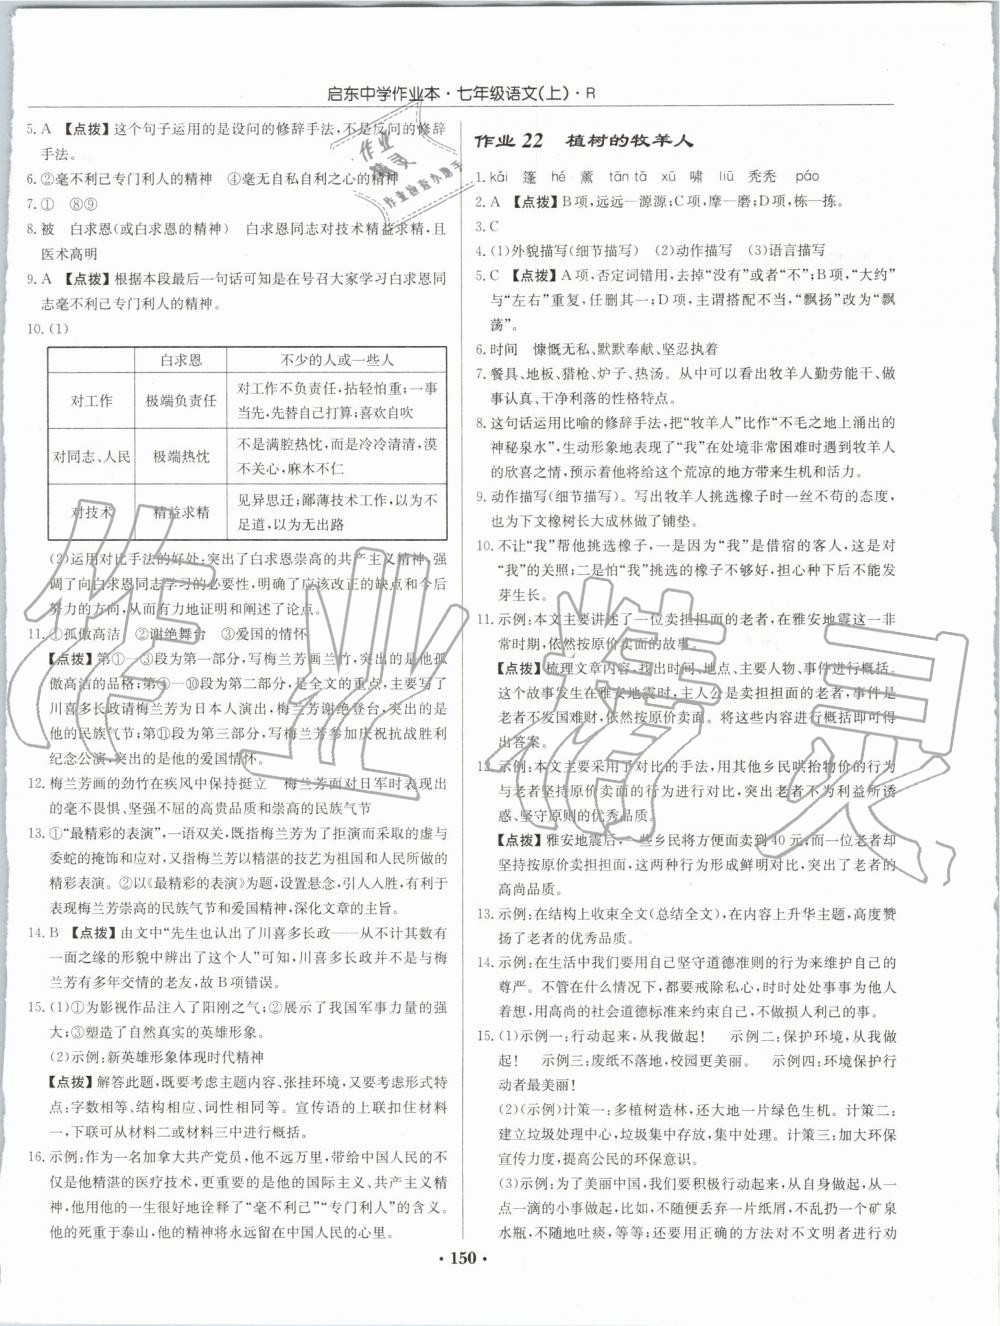 启东中学作业本·七年级语文(上)·R
5. A 【点拨】这个句子运用的是设问的修辞手法,不是反问的修辞
手法。
6. ②毫不利己专门利人的精神 ④毫无自私自利之心的精神
7. ① ⑧⑨
8. 被 白求恩(或白求恩的精神) 白求恩同志对技术精益求精,且
医术高明
9. A 【点拨】根据本段最后一句话可知是在号召大家学习白求恩同
志毫不利己专门利人的精神。
10. (1)
白求恩 不少的人或一些人
对工作 极端负责任 对工作不负责任,拈轻怕重;一事
当先,先替自己打算;喜欢自吹
对同志、人民 极端热忱 不是满腔热忱,而是冷冷清清,漠
不关心,麻木不仁
对技术 精益求精 见异思迁;鄙薄技术工作,以为不
足道,以为无出路
(2)运用对比手法的好处:突出了白求恩崇高的共产主义精神,强
调了向白求恩同志学习的必要性,明确了应该改正的缺点和今后
努力的方向,从而有力地证明和阐述了论点。
11. ①孤傲高洁 ②谢绝舞台 ③爱国的情怀
【点拨】第①—③段为第一部分,写梅兰芳画兰竹,突出的是他孤
傲高洁的品格;第④—⑩段为第二部分,是全文的重点,主要写了
川喜多长政请梅兰芳为日本人演出,梅兰芳谢绝登台,突出的是
他的民族气节;第⑪段为第三部分,写梅兰芳参加庆祝抗战胜利
纪念公演,突出的是他的爱国情怀。
12. 梅兰芳画的劲竹在疾风中保持挺立 梅兰芳面对日军时表现出
的毫不畏惧、坚强不屈的高贵品质和崇高的民族气节
13. ①“最精彩的表演”,一语双关,既指梅兰芳为了拒演而采取的虚与
委蛇的掩饰和应对,又指梅兰芳以精湛的技艺为祖国和人民所做的
精彩表演。②以《最精彩的表演》为题,设置悬念,引人入胜,有利于
表现梅兰芳崇高的民族气节和爱国精神,深化文章的主旨。
14. B 【点拨】由文中“先生也认出了川喜多长政——从不计其数有
一面之缘的形貌中辨出了这个人”可知,川喜多长政并不是与梅
兰芳有多年交情的老友,故B项错误。
15. (1)①为影视作品注入了阳刚之气;②展示了我国军事力量的强
大;③塑造了自然真实的英雄形象。
(2)示例:新英雄形象体现时代精神
【点拨】解答此题,既要考虑主题内容、张挂环境,又要考虑形式特
点:字数相等、结构相应、词性相同等。宣传语的上联扣住材料
一,下联可从材料二或材料三中进行概括。
16. 示例:作为一名加拿大共产党员,他不远万里,带给中国人民的不
仅是他精湛的医疗技术,更重要的是他的国际主义、共产主义精
神,他用他的一生很好地诠释了“毫不利己”“专门利人”的含义。
他的死重于泰山,他的精神将永远留在中国人民的心里。
作业22 植树的牧羊人
1. kǎi 篷 hé 薰 tān tā xū 啸 liū 秃秃 páo
2. A 【点拨】B项,远远—源源;C项,摩—磨;D项,栋—拣。
3. C
4. (1)外貌描写(细节描写) (2)动作描写 (3)语言描写
5. C 【点拨】A项,否定词错用,去掉“没有”或者“不”;B项,“大约”
与“左右”重复,任删其一;D项,主谓搭配不当,“飘扬”改为“飘
荡”。
6. 时间 慷慨无私、默默奉献、坚忍执着
7. 餐具、地板、猎枪、炉子、热汤。从中可以看出牧羊人勤劳能干、做
事认真、干净利落的性格特点。
8. 这句话运用比喻的修辞手法,把“牧羊人”比作“不毛之地上涌出的
神秘泉水”,生动形象地表现了“我”在处境非常困难时遇到牧羊人
的欣喜之情,预示着他将给这个荒凉的地方带来生机和活力。
9. 动作描写(细节描写)。写出牧羊人挑选橡子时一丝不苟的态度,
也为下文橡树长大成林做了铺垫。
10. 不让“我”帮他挑选橡子,一是因为“我”是借宿的客人,这是对
“我”的关照;二是怕“我”挑选的橡子不够好,担心种下后不能发
芽生长。
11. 示例:本文主要讲述了一位卖担担面的老者,在雅安地震这一非
常时期,依然按原价卖面的故事。
【点拨】梳理文章内容,找出时间、地点、主要人物、事件进行概括。
这个故事发生在雅安地震时,主人公是卖担担面的老者,事件是
老者不发国难财,依然按原价卖面。将这些内容进行概括即可得
出答案。
12. 示例:本文主要采用了对比的手法,用其他乡民哄抬物价的行为
与老者坚持原价卖面的行为进行对比,突出老者不为利益所诱
惑、坚守原则的优秀品质。
【点拨】雅安地震后,一些乡民将方便面卖到40元;而一位老者却
坚持按原价卖担担面,这两种行为形成鲜明对比,突出了老者的
高尚品质。
13. 示例:在结构上收束全文(总结全文),在内容上升华主题,高度赞
扬了老者的优秀品质。
14. 示例:在生活中我们要用自己坚守道德准则的行为来维护自己的
尊严。不管在什么情况下,都要戒除私心,时时处处事事为他人
着想,用高尚的社会道德标准来约束自己,不做损人利己的事。
15. (1)示例一:行动起来,从我做起! 示例二:保护环境,从我做
起! 示例三:废纸不落地,校园更美丽。 示例四:环境保护行
动者最美丽!
(2)(示例)计策一:多植树造林,还大地一片绿色生机。计策二:
建立垃圾处理中心,垃圾集中存放,集中处理。计策三:加大环保
宣传力度,提高公民的环保意识。
(3)示例:为了美丽中国,我们要积极行动起来,从自身做起,从一
点一滴的小事做起,比如,不随便丢弃一片纸屑,不乱扔一个矿泉
水瓶,不贪吃路边摊,等等;还要用正确的方法对不文明者进行劝
·150·
作业精灵
作业精灵
作业的好办助手